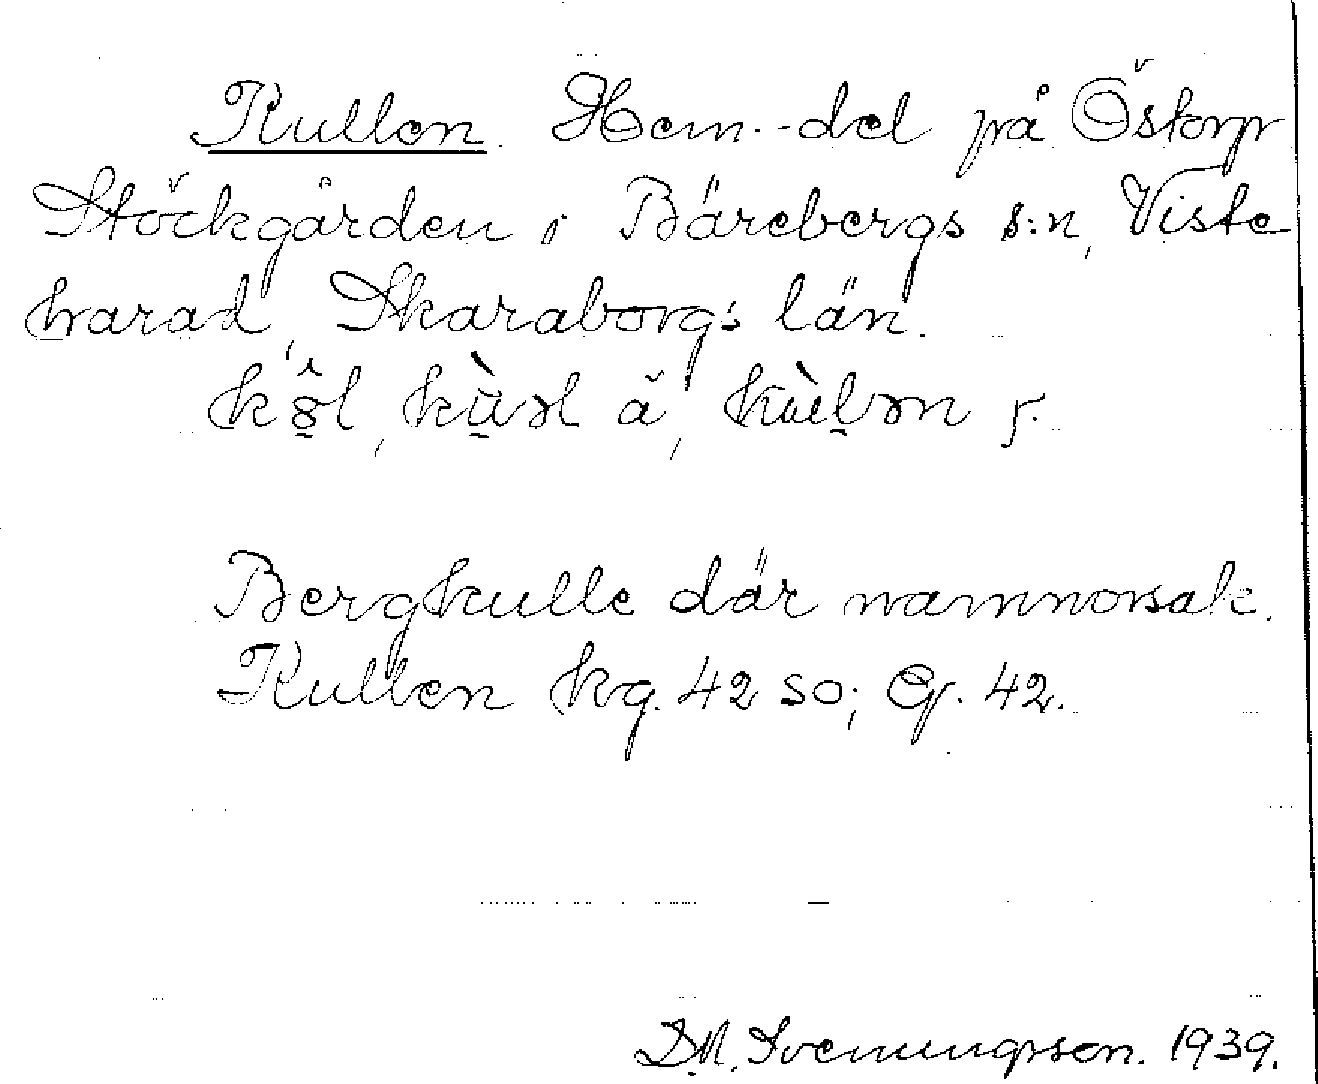 Kullen. Hem.-del på Östorp
Stöckgården i Bärebergs s:n, Viste
harad, Skaraborgs län.
Bergkulle där namnorsak.
Kullen kg. 42 SO; G. 42.
D.N. Svenungsson. 1939.